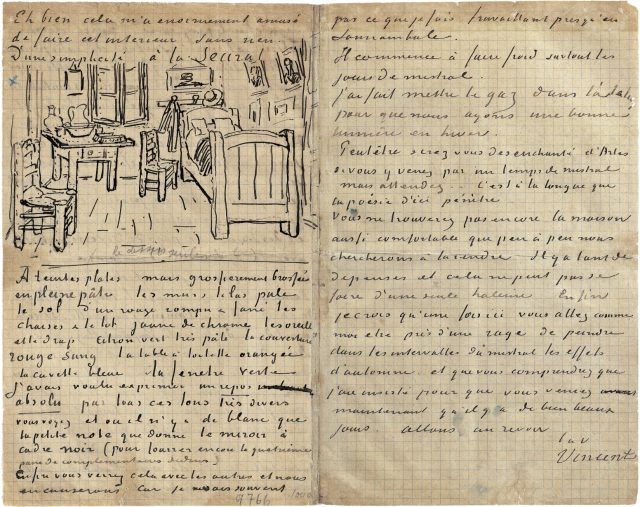 Eh bien cela m'a enormement amusé
de faire cet interieur sans rien
D'une simplicité à la Seurat
A teintes plates mais grossierement brossée
en pleine pâte les murs lilas pale
le sol d'un rouge rompu & fané les
chaises & le lit jaune de chrome les oreillers
et le drap citron vert très pâle la couverture
rouge sang la table à toilette orangée
la cuvette bleue la fenetre verte
J'avais voulu exprimer un repos
absolu par tous ces tons très divers
vous voyez et où il n'y a de blanc que
la petite note que donne le miroir à
cadre noir (pour fourrer encore la quatrième
paire de complementaires dedans)
Enfin vous verrez cela avec les autres et nous
en causerons car je ne sais souvent
9766
pas ce que je fais travaillant presqu'en
somnambule.
Il commence à faire froid surtout les
jours de mistral.
J'ai fait mettre le gaz dans l'atelier
pour que nous ayons une bonne
lumière en hiver.
Peutêtre serez vous desenchanté d'Arles
si vous y venez par un temps de mistral
mais attendez... C'est à la longue que
la poésie d'ici pénètre
vous ne trouverez pas encore la maison
aussi comfortable que peu à peu nous
chercherons à la rendre Il y a tant de
depenses et cela ne peut pas se
faire d'une seule haleine Enfin
je crois qu'une fois ici vous allez comme
moi etre pris d'une rage de peindre
dans les intervalles du mistral les effets
d'automne. et que vous comprendrez que
j'ai insisté pour que vous venez
maintenant qu'il y a de bien beaux
jours. allons au revoir
t. à v.
Vincent